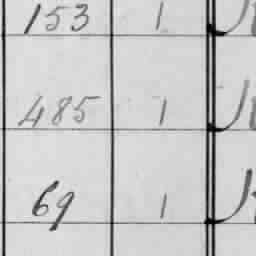 153 1
485 1
69 1